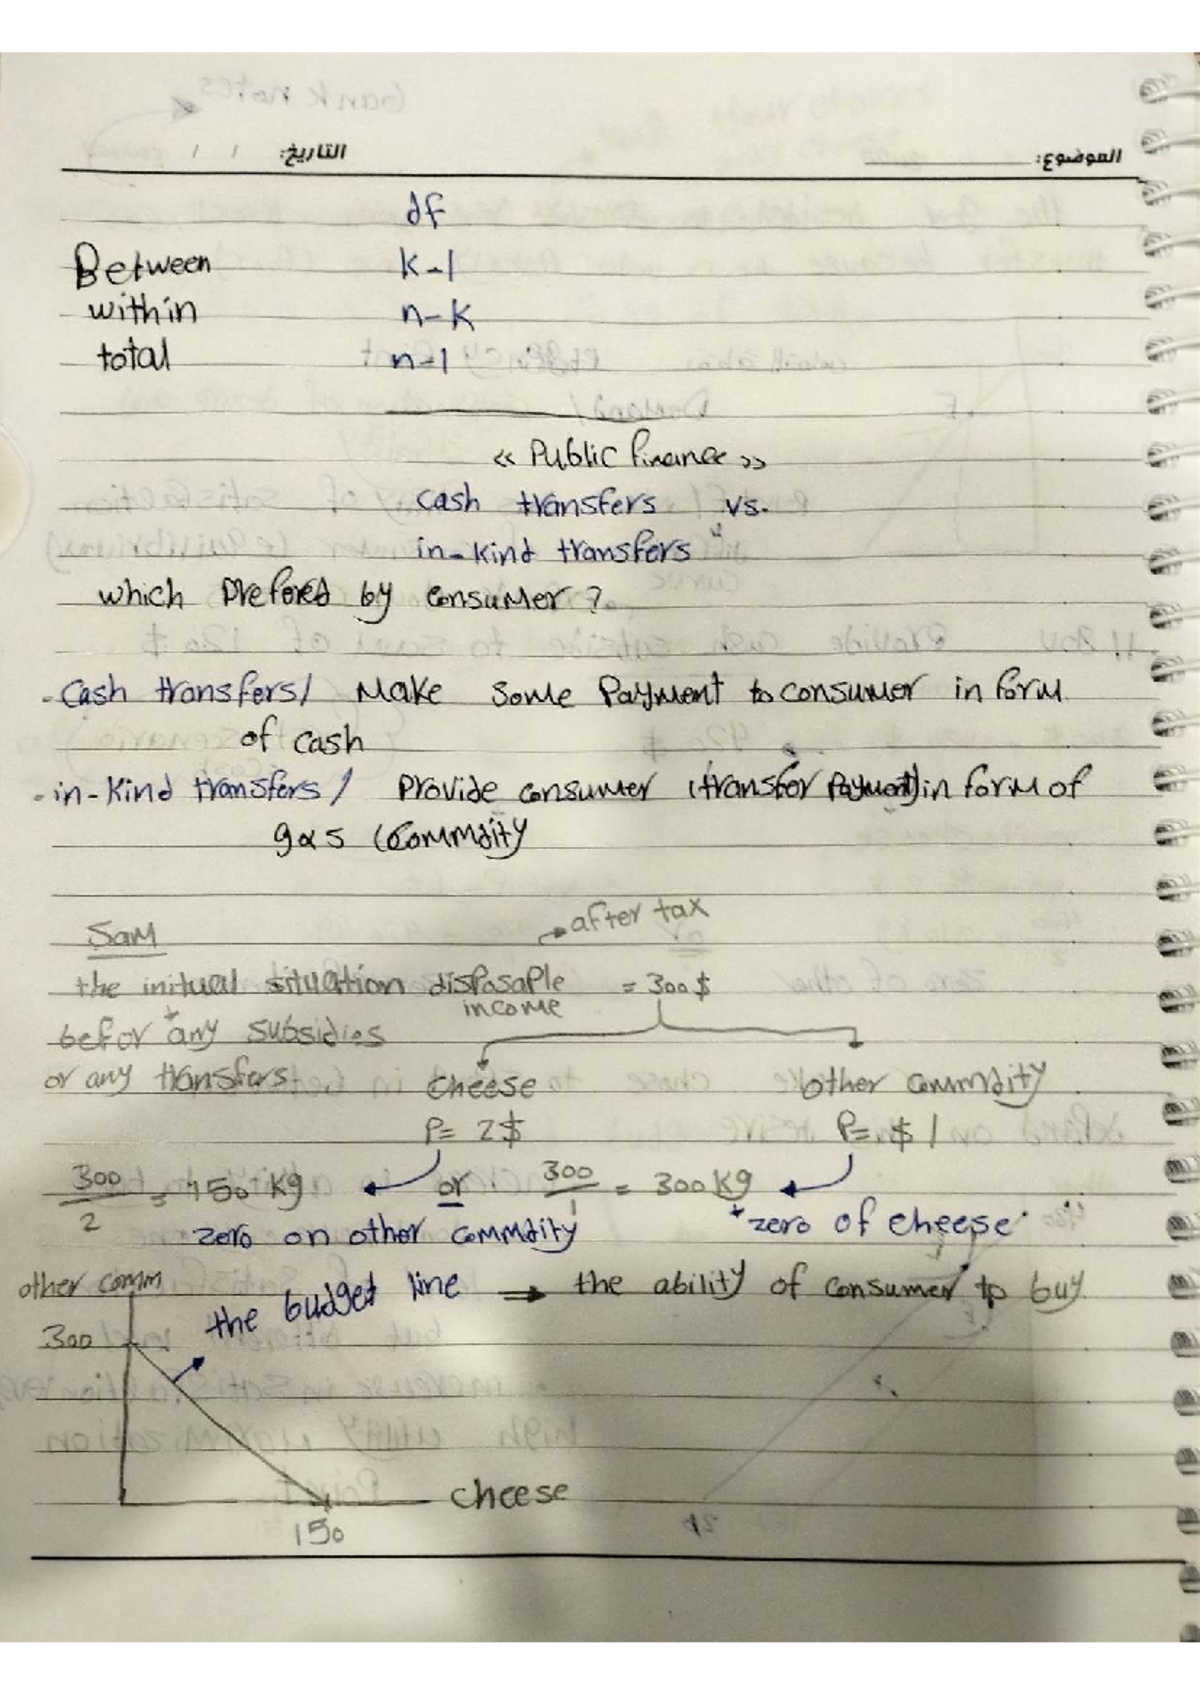 الموضوع: التاريخ: / /
df
Between k-1
within n-k
total n-1
« Public finance »
cash transfers vs.
in-kind transfers
which prefored by consumer ?
- Cash transfers/ Make some Payment to consumer in form
of cash
- in-kind transfers / Provide consumer (transfer Payment) in form of
g&s (commdity
Sam
→ after tax
the initual situation disposaple = 300 $
income
befor any subsidies
or any transfers
cheese other commdity
P= 2$ P= $ 1
300/2 = 150 kg or 300/1 = 300 kg
zero on other commdity zero of cheese
other comm the budget line → the ability of consumer to buy
300
cheese
150